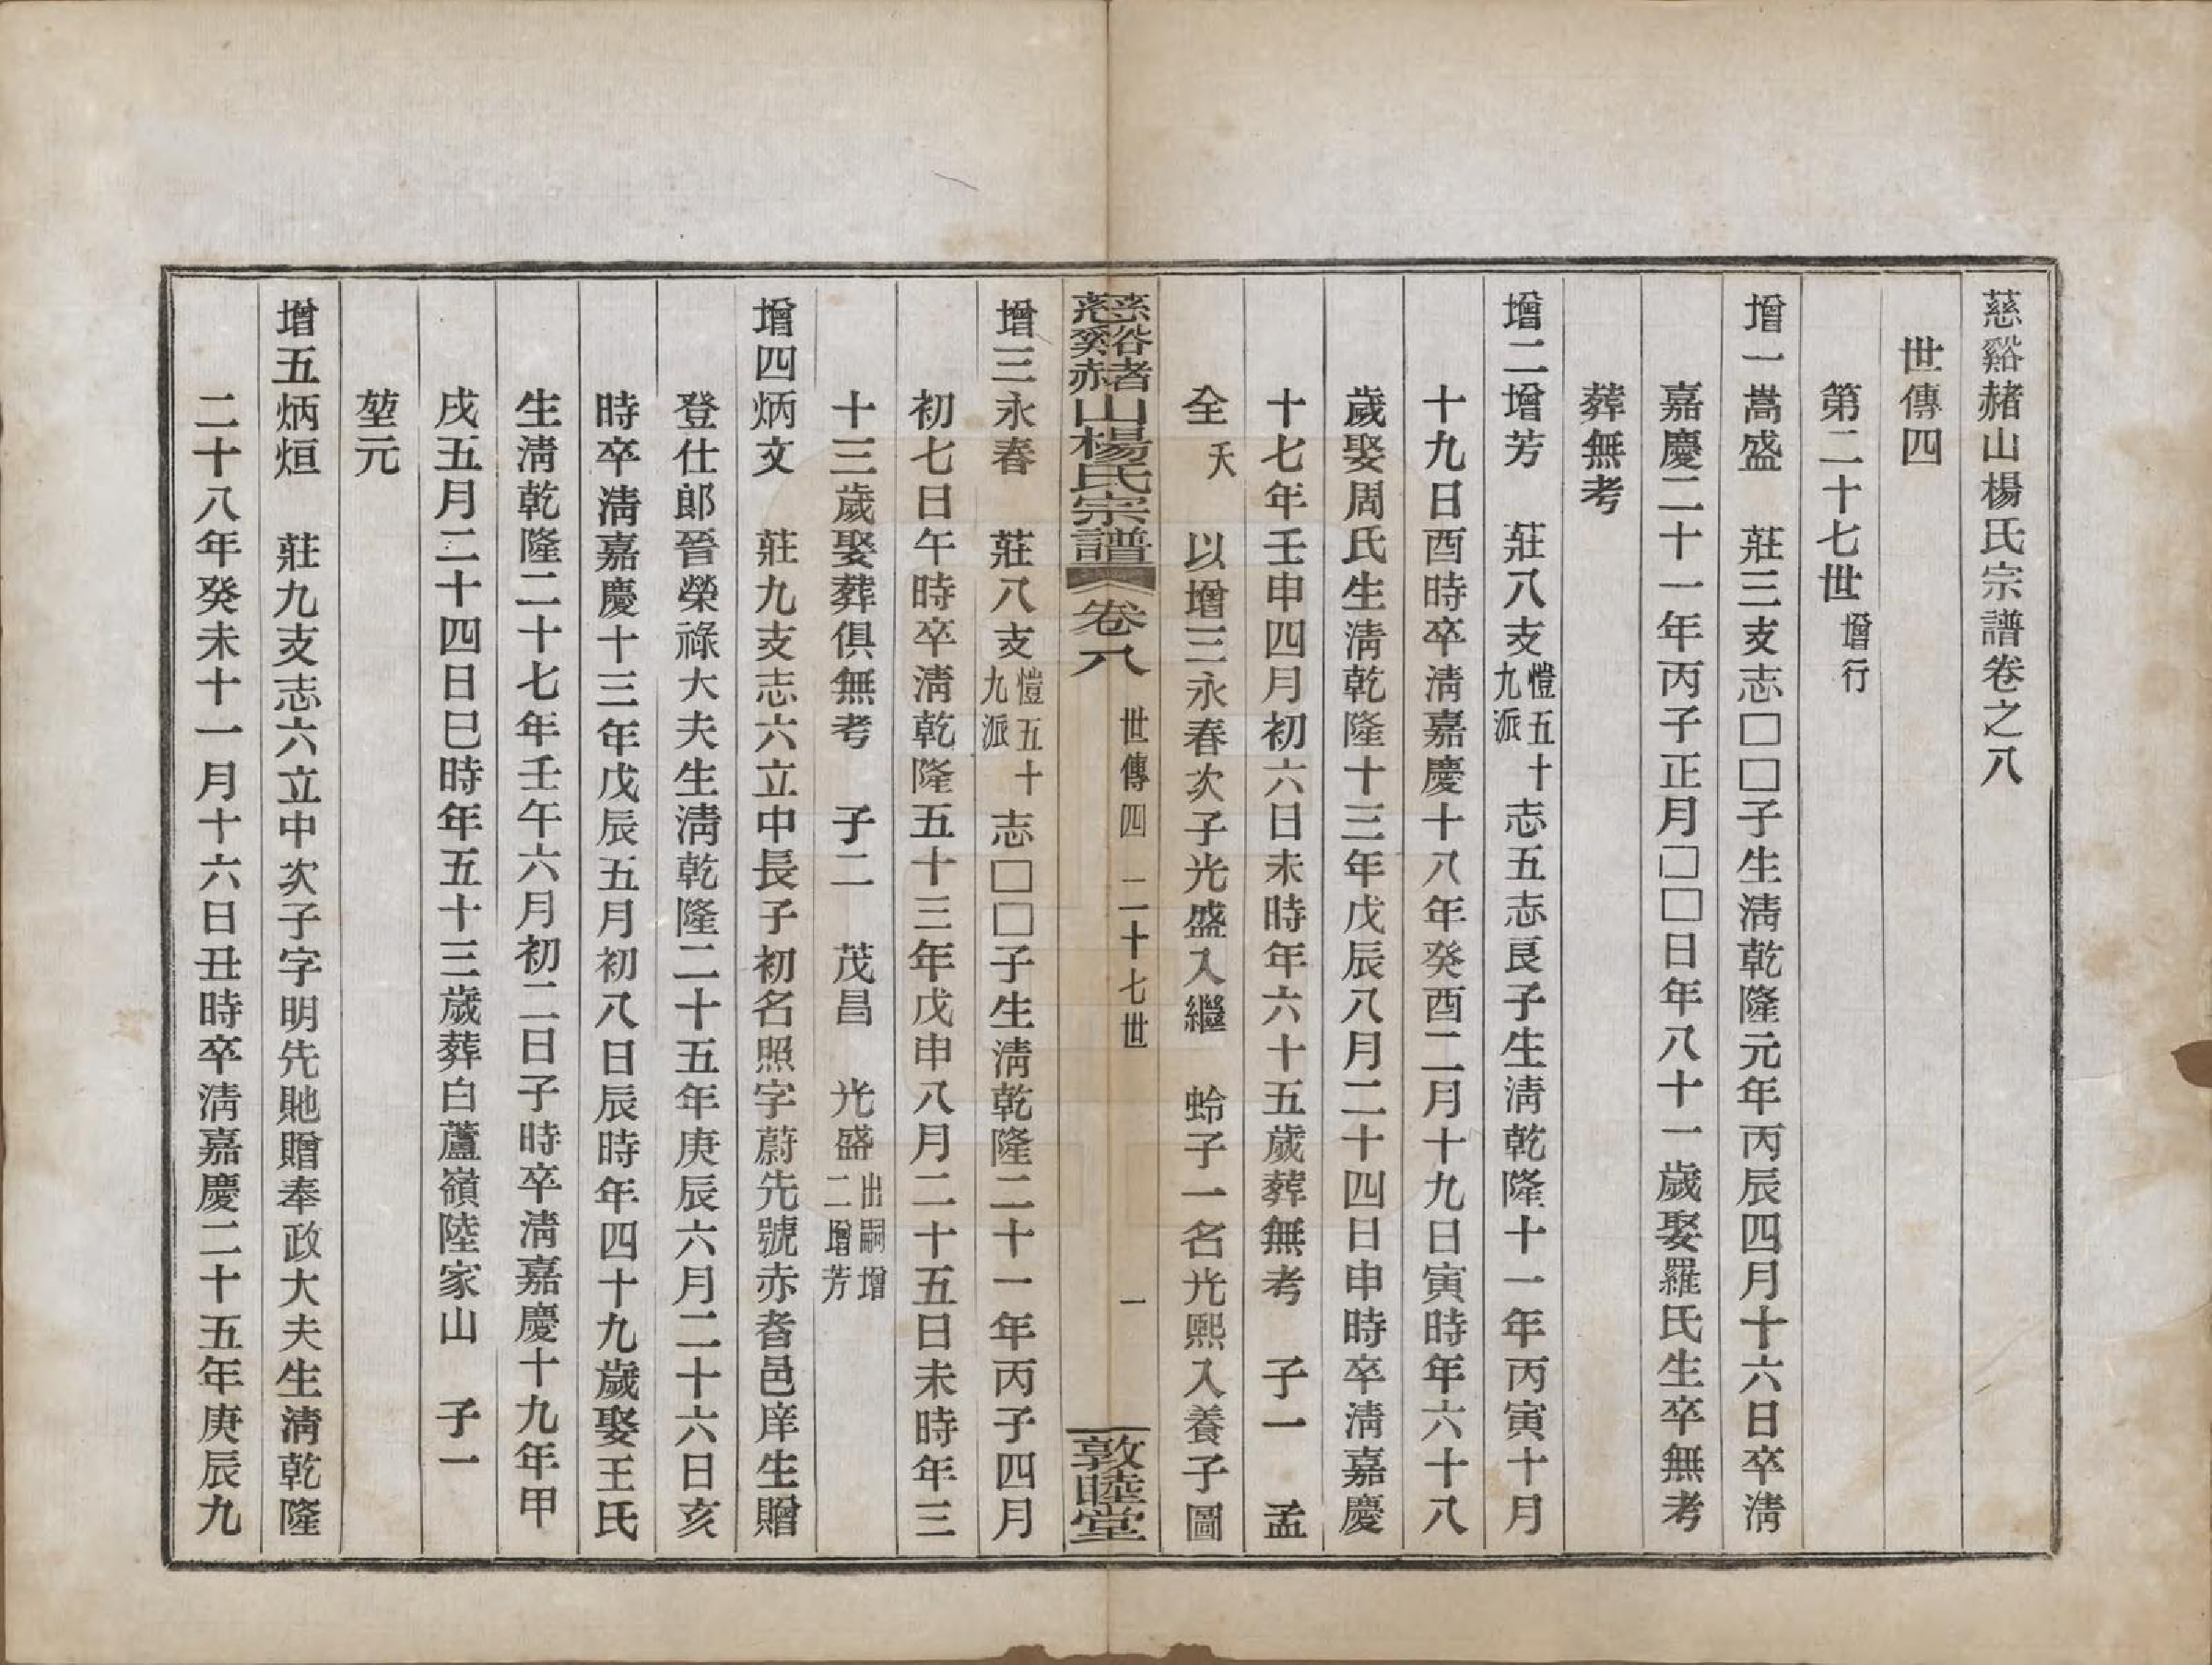 慈谿赭山楊氏宗譜卷之八
世傳四
第二十七世增行
增一嵩盛　莊三支志□□子生清乾隆元年丙辰四月十六日卒清
嘉慶二十一年丙子正月□□日年八十一歲娶羅氏生卒無考
葬無考
增二增芳　莊八支愷五十九派志五志良子生清乾隆十一年丙寅十月
十九日酉時卒清嘉慶十八年癸酉二月十九日寅時年六十八
歲娶周氏生清乾隆十三年戊辰八月二十四日申時卒清嘉慶
十七年壬申四月初六日未時年六十五歲葬無考　子一　孟
全夭　以增三永春次子光盛入繼　蛉子一名光熙入養子圖
慈谿赭山楊氏宗譜　卷八　世傳四　二十七世　一　敦睦堂
增三永春　莊八支愷五十九派志□□子生清乾隆二十一年丙子四月
初七日午時卒清乾隆五十三年戊申八月二十五日未時年三
十三歲娶葬俱無考　子二　茂昌　光盛出嗣增二增芳
增四炳文　莊九支志六立中長子初名照字蔚先號赤耆邑庠生贈
登仕郎晉榮祿大夫生清乾隆二十五年庚辰六月二十六日亥
時卒清嘉慶十三年戊辰五月初八日辰時年四十九歲娶王氏
生清乾隆二十七年壬午六月初二日子時卒清嘉慶十九年甲
戌五月二十四日巳時年五十三歲葬白蘆嶺陸家山　子一
堃元
增五炳烜　莊九支志六立中次子字明先貤贈奉政大夫生清乾隆
二十八年癸未十一月十六日丑時卒清嘉慶二十五年庚辰九